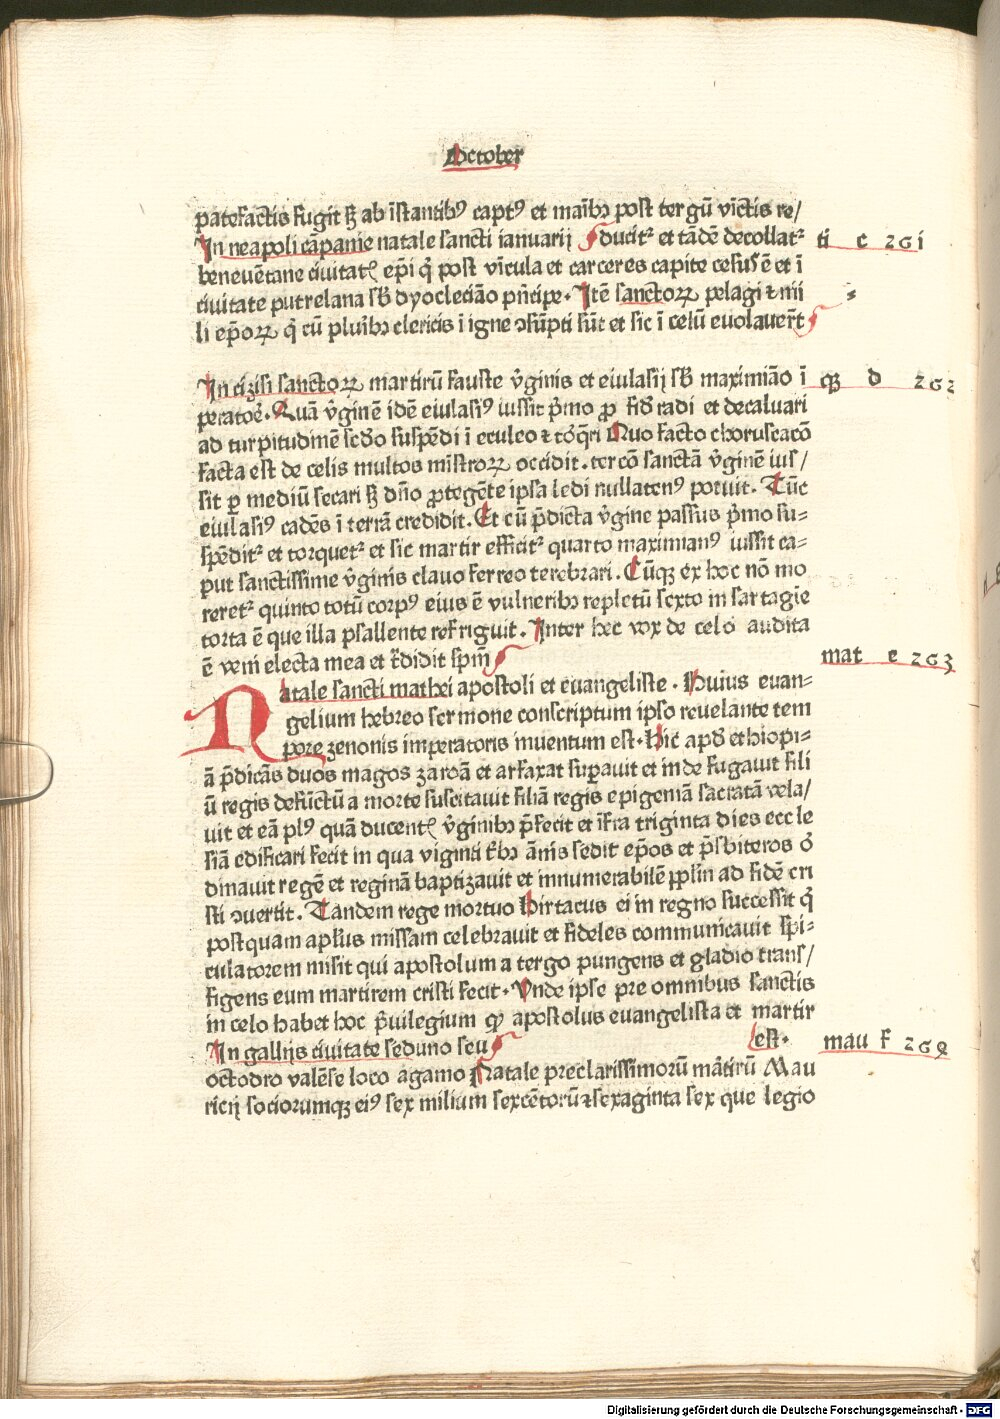 October
patefactis fugit sꝫ ab īstantibꝰ captꝰ et maībꝫ post tergū vīctis re/
In neapoli cāpanie natale sancti ianuarij ducitᷣ et tādē decollatᷣ ti c 261
beneuētane ciuitatꝭ epī qͥ post vīcula et carceres capite cesus ē et ī
ciuitate putrelana sb̄ dyocleciāo pͥncipe. Itē sanctoꝝ pelagi ⁊ nii
li ep̄oꝝ qͥ cū pluībꝫ clericis ī igne ↄsūpti sūt et sic ī celū euolauer̄t
In cizisi sanctoꝝ martirū fauste v̓ginis et eiulasij sb̄ maximiāo ī qꝫ d 262
peratoē. Quā v̓ginē idē eiulasiꝰ iussit pͥmo ꝓ fid̄ radi et decaluari
ad turpitudinē scd̄o suspēdi ī eculeo ⁊ tōq̄ri Quo facto choruscacō
facta est de celis multos mīstroꝝ occidit. tercō sanctā v̓ginē ius/
sit ꝑ mediū secari sꝫ dn̄o ꝓtegēte ipsa ledi nullatenꝰ potuit. Tūc
eiulasiꝰ cadēs ī terrā credidit. Et cū p̄dicta v̓gine passus pͥmo su-
spēditᷣ et torquetᷣ et sic martir efficitᷣ quarto maximianꝰ iussit ca-
put sanctissime v̓ginis clauo ferreo terebrari. Cūqꝫ ex hoc nō mo
reretᷣ quinto totū corpꝰ eius ē vulneribꝫ repletū sexto in sartagīe
torta ē que illa psallente refriguit. Inter hec vox de celo audita
ē veni electa mea et t̄didit spm̄ mat e 263
Natale sancti mathei apostoli et euangeliste. Huius euan-
gelium hebreo sermone conscriptum ipso reuelante tem
pore zenonis imperatoris inuentum est. Hic apd̄ ethiopi-
ā p̄dicās duos magos zaroā et arfaxat suꝑauit et inde fugauit fili
ū regis defūctū a morte suscitauit filiā regis epigeniā sacratā vela/
uit et eā plꝰ quā ducentꝭ v̓ginibꝫ p̄fecit et īfra triginta dies eccle
siā edificari fecit in qua viginti t̓bꝫ ānis sedit ep̄os et p̄sbiteros o᷑
dinauit regē et reginā baptizauit et innumerabilē ppl̄m ad fidē cri
sti ↄuertit. Tandem rege mortuo hirtacus ei in regno successit qͥ
postquam apl̄us missam celebrauit et fideles communicauit spi-
culatorem misit qui apostolum a tergo pungens et gladio trans/
figens eum martirem cristi fecit. Vnde ipse pre omnibus sanctis
in celo habet hoc p̄uilegium qꝫ apostolus euangelista et martir
In gallijs ciuitate seduno seu est. mau f 264
octodro valēse loco agamo Natale preclarissimorū mārtirū Mau
ricij sociorumqꝫ eiꝰ sex milium sexcētorū ⁊ sexaginta sex que legio
Digitalisierung gefördert durch die Deutsche Forschungsgemeinschaft - DFG